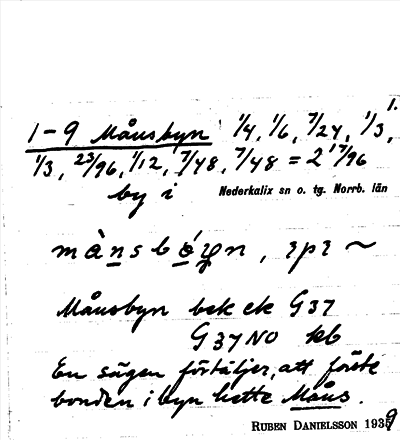 1.
1-9 Månsbyn 1/4, 1/6, 7/24, 1/3,
1/3, 23/96, 1/12, 7/48, 7/48 = 2 17/96
by i Nederkalix sn o. tg. Norrb. län
Månsbyn bek ek G37
G37NO kb
En sägen förtäljer, att förste
bonden i byn hette Måns.
RUBEN DANIELSSON 1939